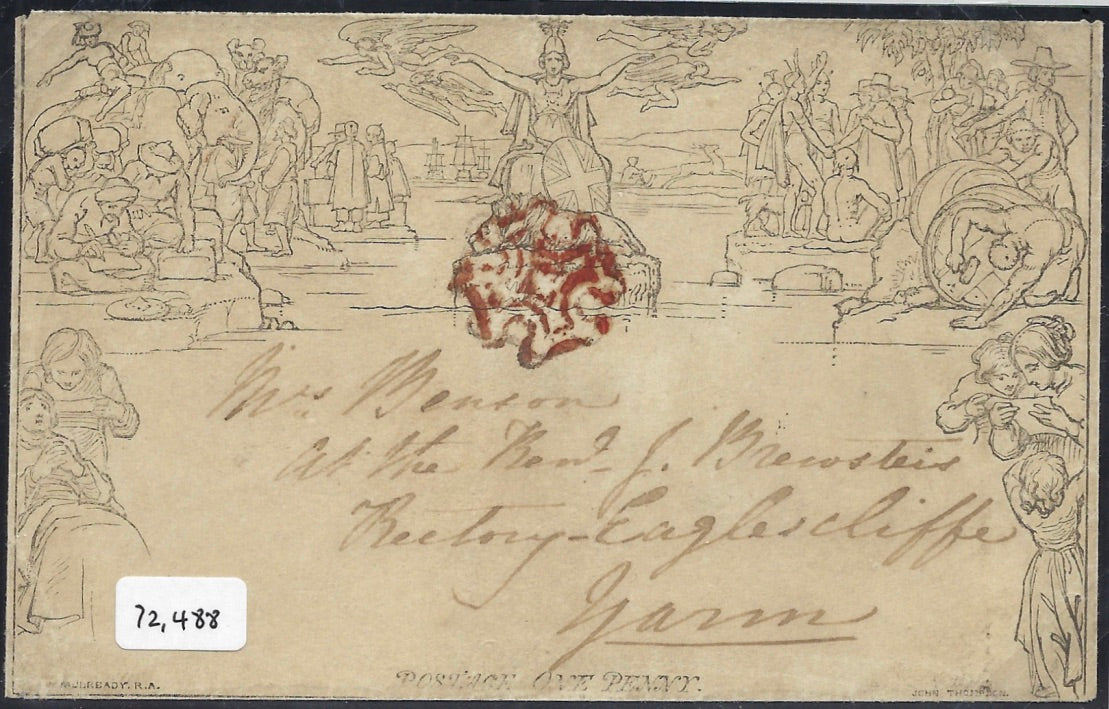 Mrs Benson
at the Revd. J. Brewster's
Rectory - Eaglescliffe
Yarm
72,488
POSTAGE ONE PENNY.
MULREADY. R.A.
JOHN THOMPSON.